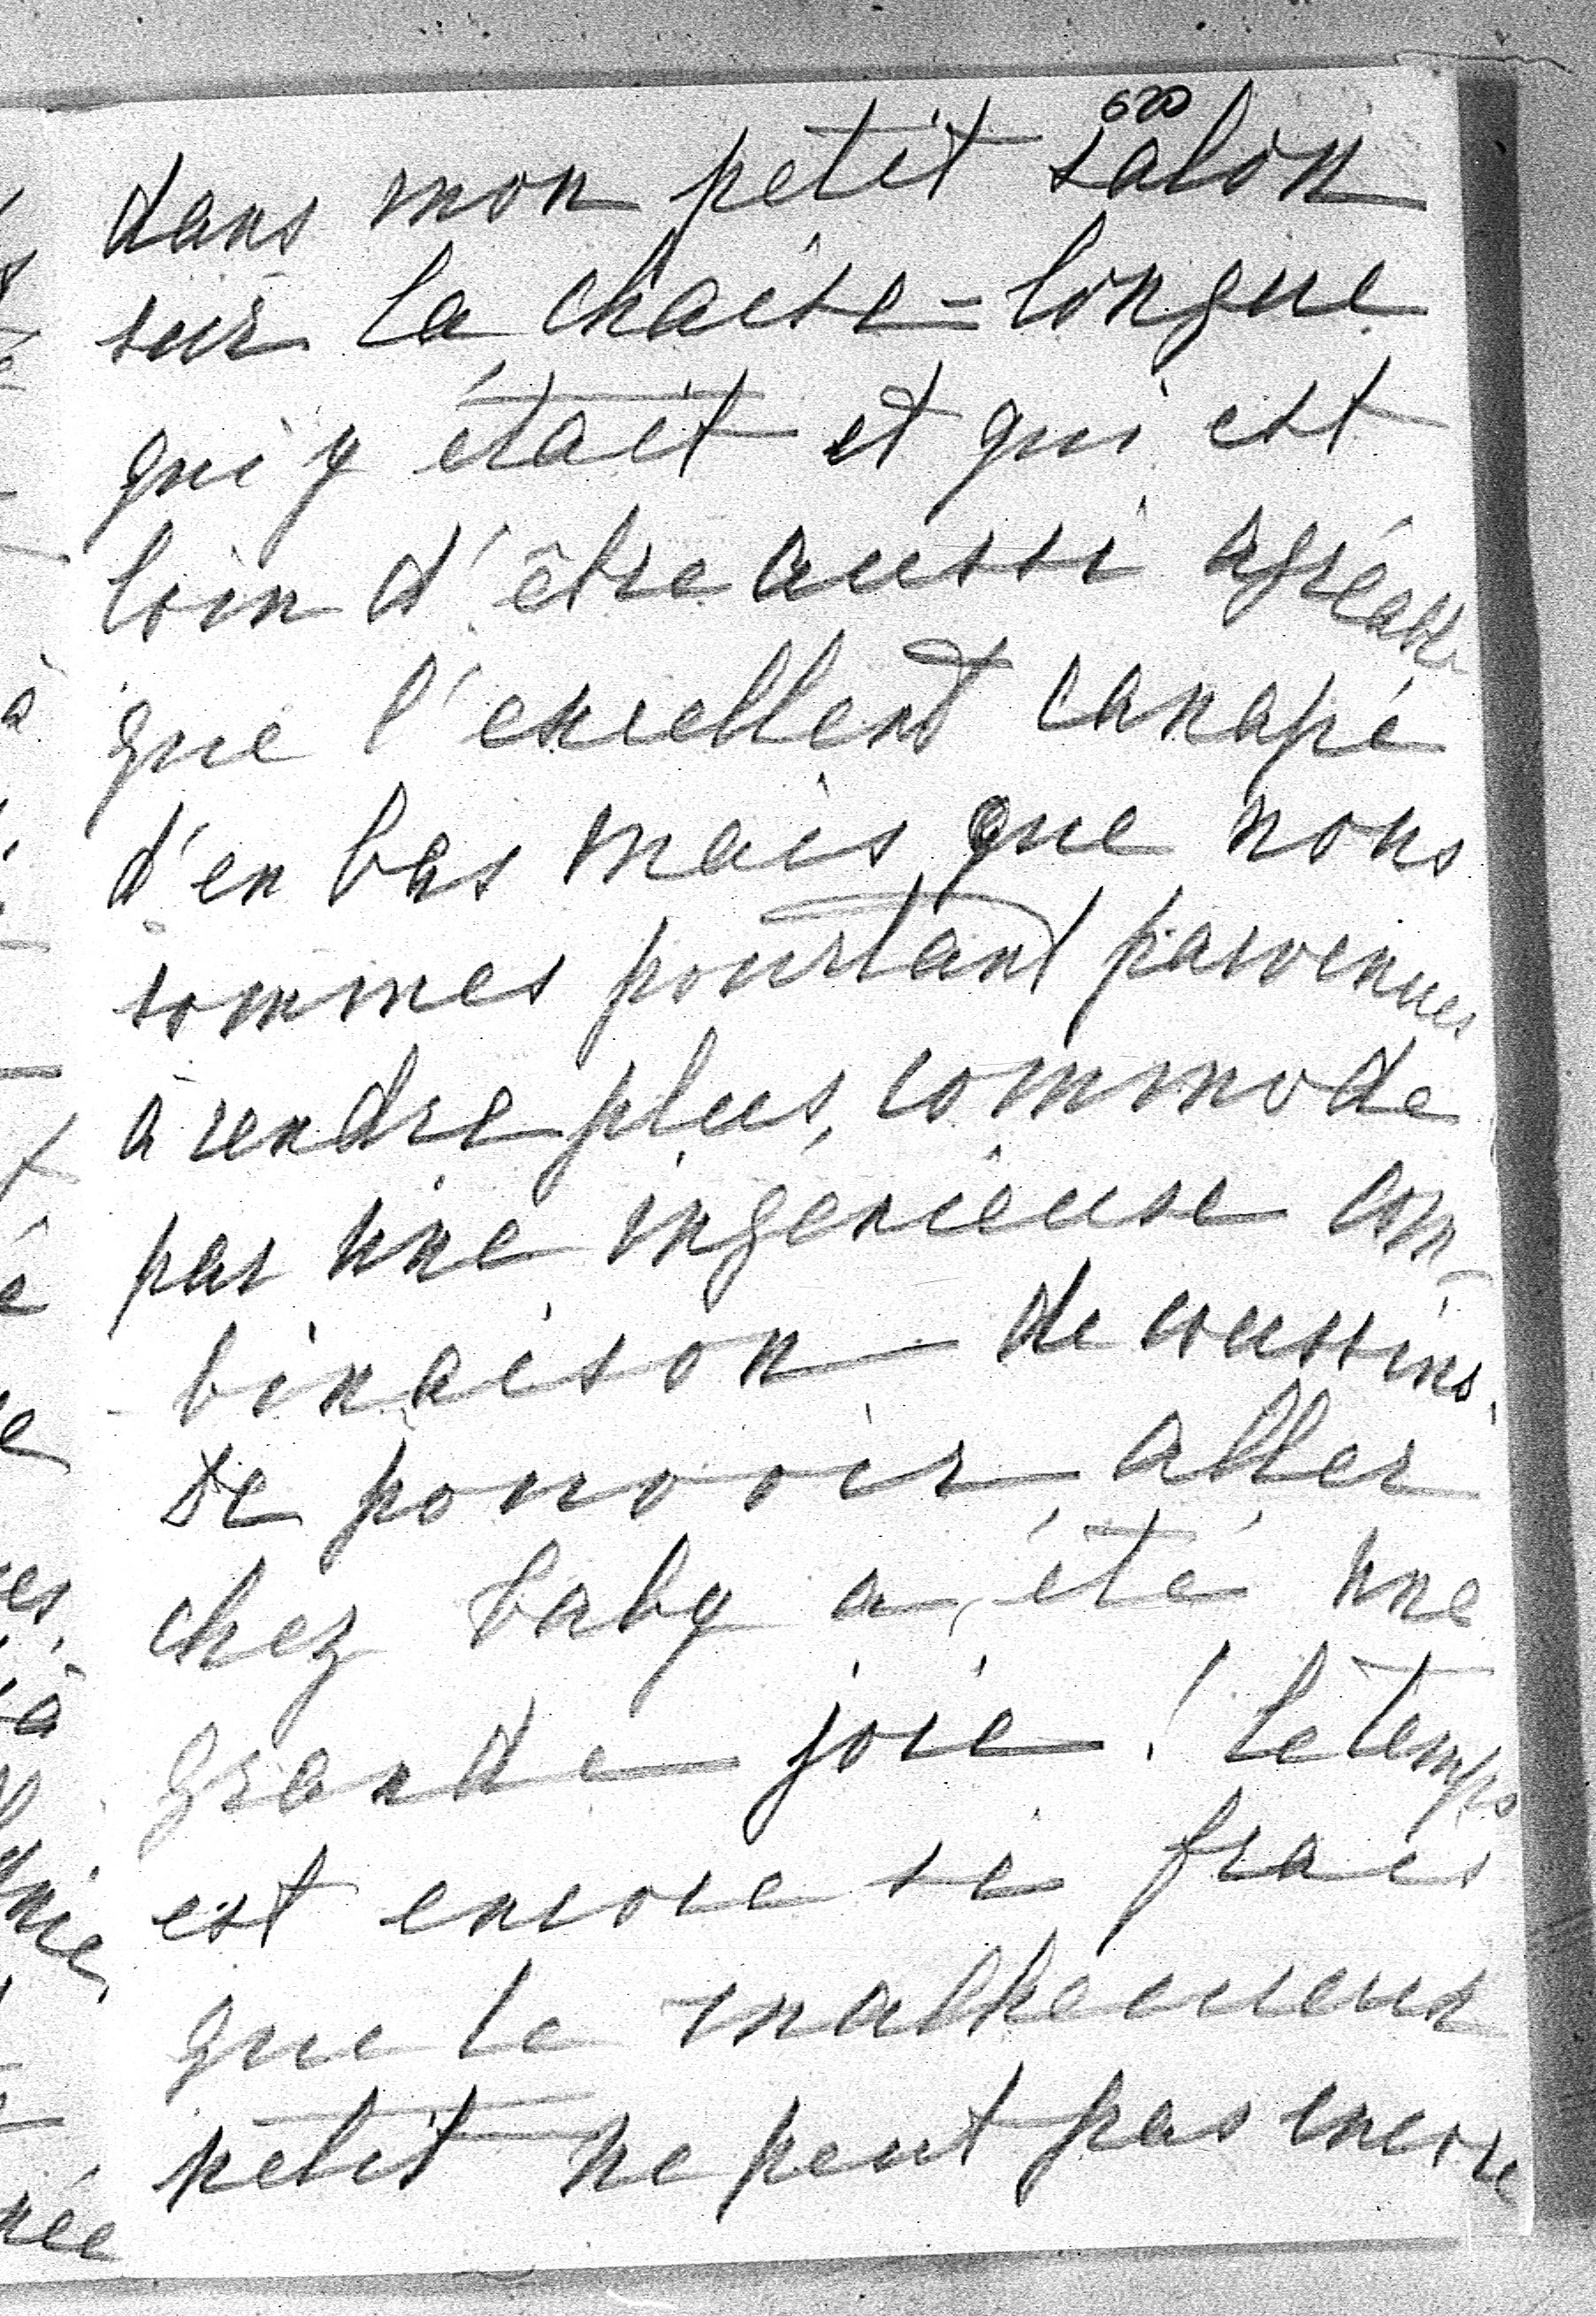 620
dans mon petit salon
sur la chaise=longue
qui y était et qui est
loin d'être aussi agréable
que l'excellent canapé
d'en bas mais que nous
sommes pourtant parvenues
à rendre plus commode
par une ingénieuse com-
binaison de coussins.
De pouvoir aller
chez baby a été une
grande joie! Le temps
est encore si frais
que le malheureux
petit ne peut pas encore